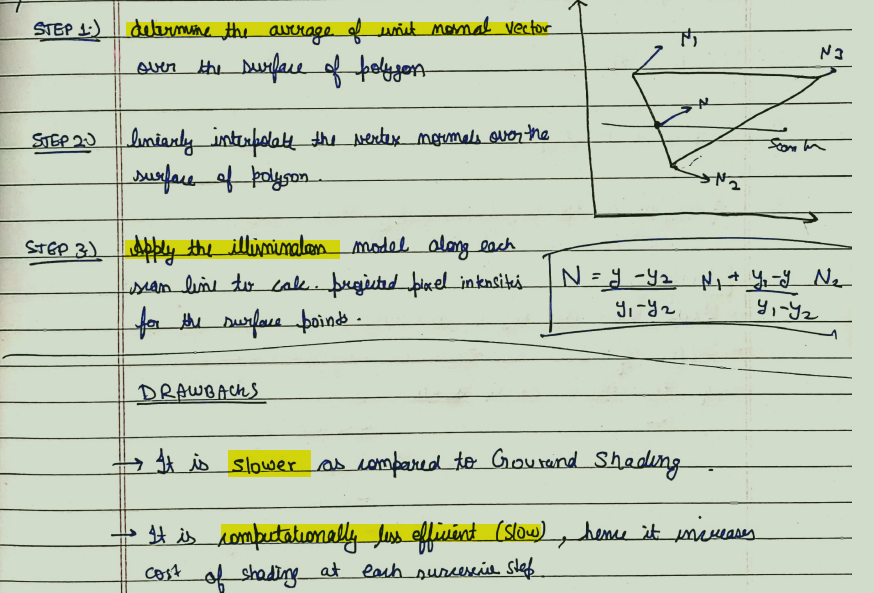 STEP 1:) determine the average of unit normal vector
over the surface of polygon
STEP 2:) linearly interpolate the vertex normals over the
surface of polygon.
STEP 3:) Apply the illimination model along each
scan line to calc. projected pixel intensitis
for the surface points.
N1
N3
N
Scan
N2
N = y - y2 / y1 - y2 N1 + y1 - y / y1 - y2 N2
DRAWBACKS
→ It is slower as compared to Gourand Shading.
→ It is computationally less efficient (slow), hence it increases
cost of shading at each successive step.